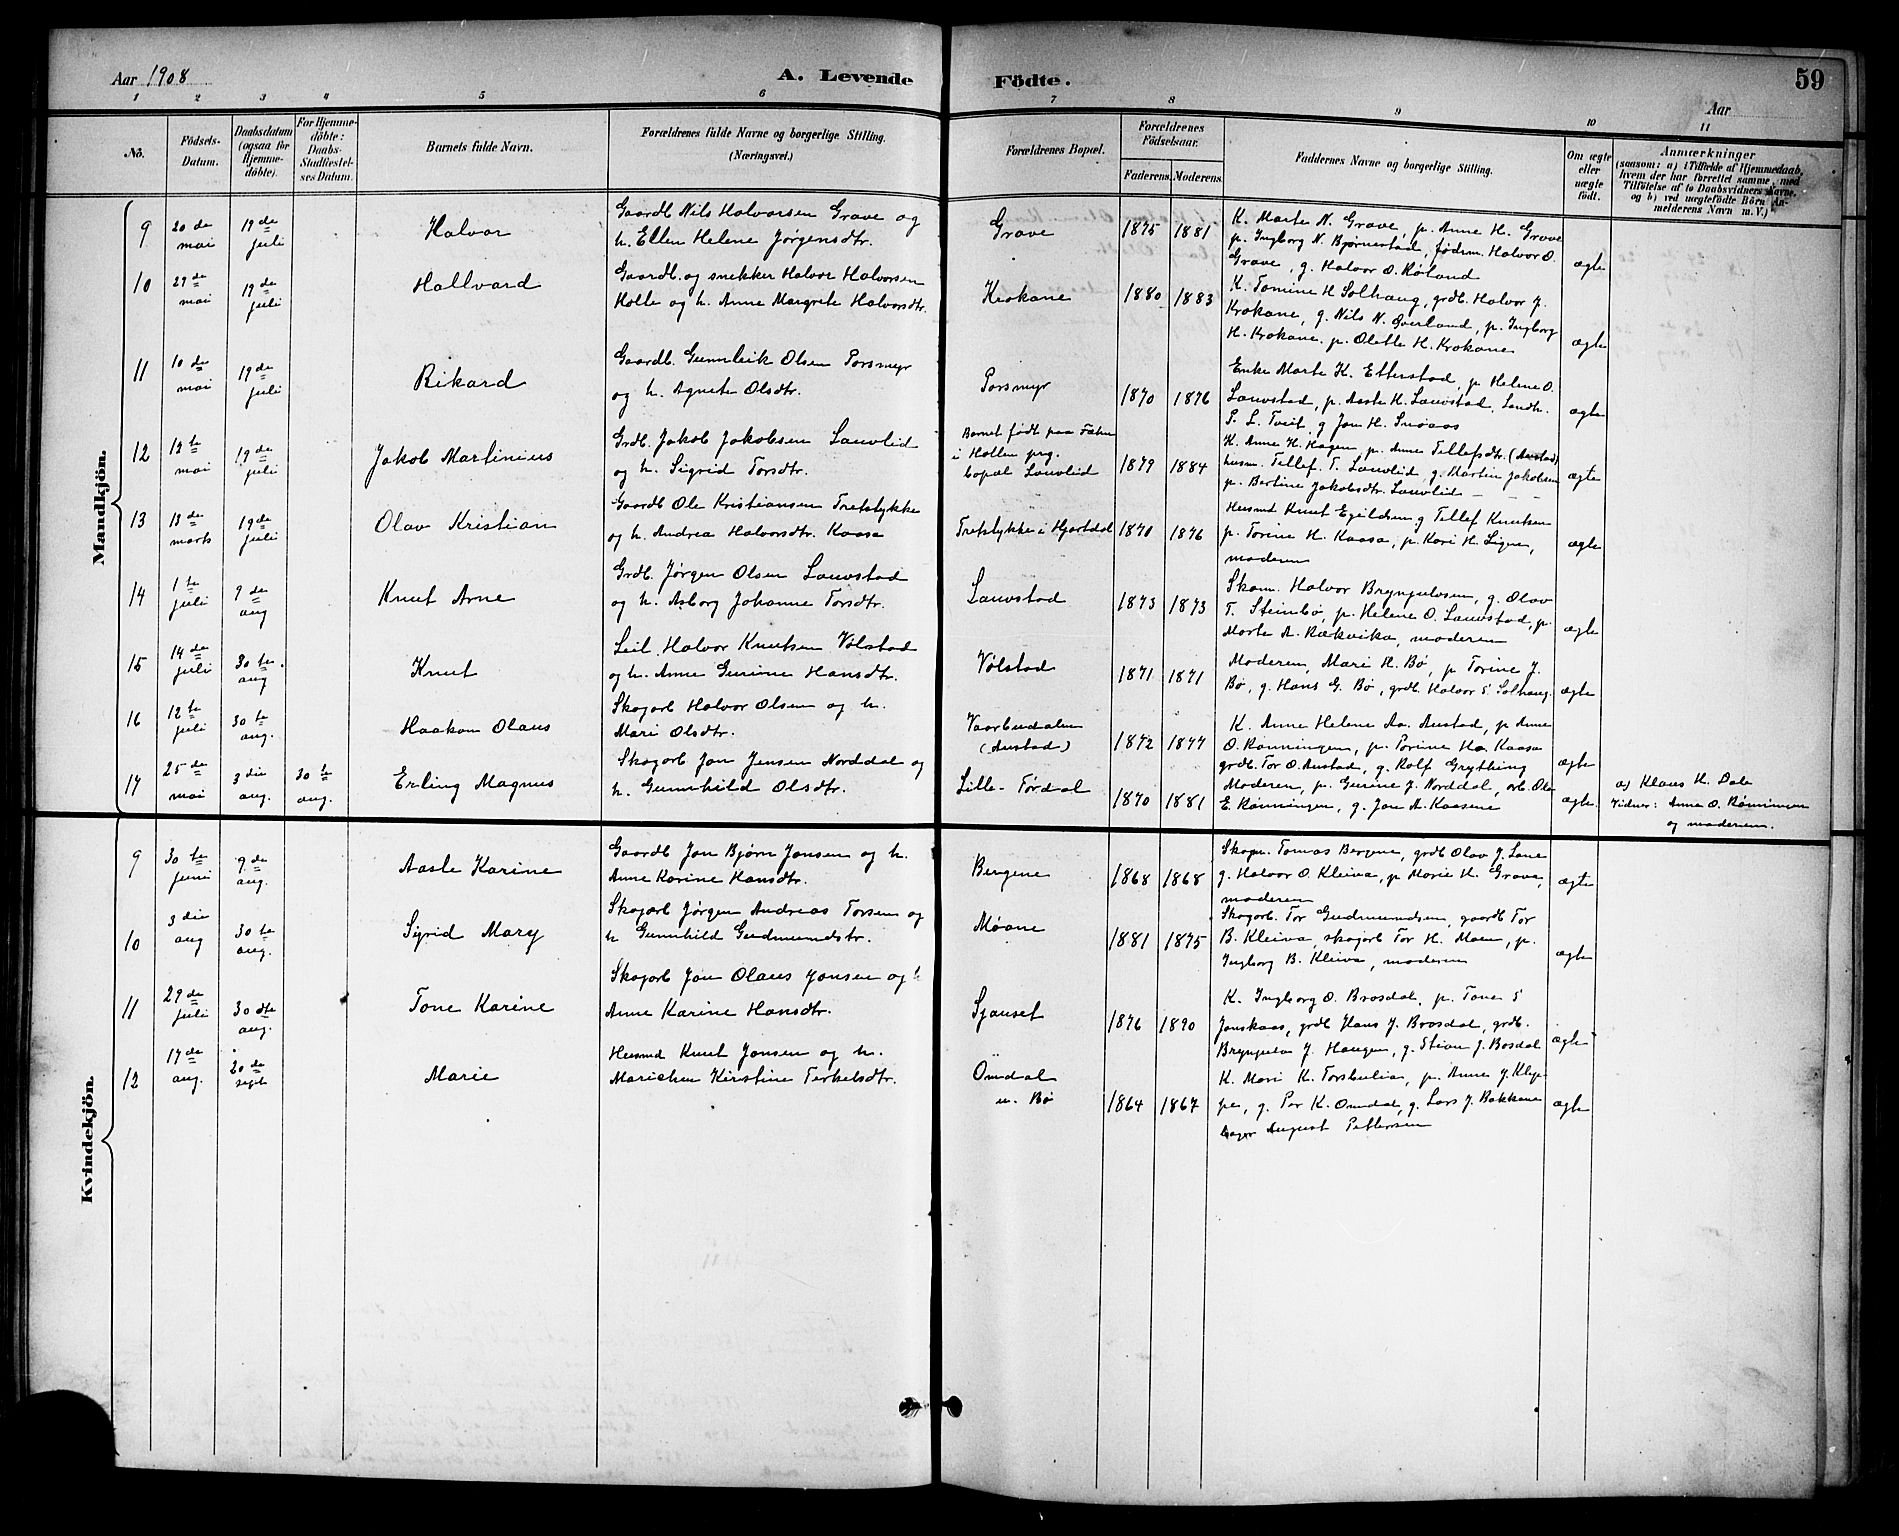 Aar 1908
A. Levende Födte.
59
Aar
1 2 3 4 5 6 7 8 9 10 11
Nô.
Födsels-Datum.
Daabsdatum (ogsaa for Hjemme-döbte).
For Hjemme-döbte: Daabs-Stadfæstel-ses Datum.
Barnets fulde Navn.
Forældrenes fulde Navne og borgerlige Stilling. (Næringsvei.)
Forældrenes Bopæl.
Forældrenes Födselsaar.
Faderens. Moderens.
Faddernes Navne og borgerlige Stilling.
Om ægte eller uægte födt.
Anmærkninger
(saasom: a) i Tilfælde af Hjemmedaab, hvem der har forrettet samme, med Tilföielse af to Daabsvidners Navne, og b) ved uægtefödte Börn An-melderens Navn m. V.)
Mandkjön.
9 20 de mai 19 de juli Halvor
Gaardb Nils Halvorsen Grave og
h. Ellen Helene Jørgensdtr.
Grave 1875 1881
K. Marte N. Grave, p. Anne H. Grave
p. Ingborg N. Bjørnestad, fødem. Halvor O.
Grave, g. Halvor O. Røland
ægte
10 29 de mai 19 de juli Hallvard
Gaardb. og snekker Halvor Halvorsen
Holte og h. Anne Margrete Halvorsdtr.
Krokane 1880 1883
K. Tomine H Solhaug, grdb. Halvor J.
Krokane, g. Nils N. Øverland, p. Ingborg
H. Krokane, p. Olette H. Krokane
ægte
11 10 de mai 19 de juli Rikard
Gaardb. Gunnleik Olsen Porsmyr
og h. Agnete Olsdtr.
Porsmyr 1870 1876
Enke Marte K. Etterstad, p Helene O.
Lauvstad, p. Aaste H. Lauvstad, Landh.
P. L. Tveit, g Jon H. Snøaas
ægte
12 12 te mai 19 de juli Jakob Martinius
Grdb. Jakob Jakobsen Lauvlid
og h. Sigrid Torsdtr.
Barnet født paa
i Hollen prg.
bopæl Lauvlid
1879 1884
K. Anne H. Hagen, p. Anne Tellefsdtr. (Austad)
husm. Tellef. T. Lauvlid, g. Martin Jakobsen
p. Bertine Jakobsdtr. Lauvlid
ægte
13 13 de marts 19 de juli Olav Kristian
Gaardb Ole Kristiansen Tretstykke
og h. Andrea Halvorsdtr. Kaasa
Tretstykke i Hjartdal 1870 1876
Husmd Knut Egildsen, g Tellef Knutsen
p. Torine H. Kaasa, p. Kari H. Ligne,
moderen
ægte
14 1 te juli 9 de aug Knut Arne
Grdb. Jørgen Olsen Lauvstad
og h. Asborg Johanne Torsdtr.
Lauvstad 1873 1873
Skom. Halvor Bryngulvsen, g. Olav
T. Steinbø, p. Helene O. Lauvstad, p.
Marte A. Rækvika, moderen
ægte
15 14 de juli 30 te aug Knut
Leil. Halvor Knutsen Vølstad
og h. Anne Gurine Hansdtr.
Vølstad 1871 1871
Moderen, Mari H. Bø, p Torine J.
Bø, g. Hans G. Bø, grdb. Halvor S Solhaug.
ægte
16 12 te juli 30 te aug. Haakon Olaus
Skogarb Halvor Olsen og h.
Mari Olsdtr.
Vaarbudalen
(Austad)
1872 1877
K. Anne Helene Aa. Austad, p Anne
O. Rønningen, p. Torine Ha. Kaasa
grdb. Tor O. Austad, g. Rolf Grything
ægte
17 25 de mai 3 die aug. 30 te aug. Erling Magnus
Skogarb Jon Jensen Norddal og
h. Gunnhild Olsdtr.
Lille-Tørdal 1870 1881
Moderen, p. Gurine J. Norddal, arb. Ole
E. Rønningen, g. Jon A. Kaasene
ægte.
a) Klaus K. Dale
Vidner: Anne O. Rønningen
og moderen.
Kvindekjön.
9 30 te juni 9 de aug. Aasle Karine
Gaardb Jon Bjørn Jonsen og h.
Anne Karine Hansdtr.
Bergene 1868 1868
Skogv. Tomas Bergene, grdb Olav J. Lone
g. Halvor O. Kleiva, p. Marie H. Grave,
moderen
ægte
10 3 die aug 30 te aug. Sigrid Mary
Skogarb Jørgen Andreas Torsen og
h Gunnhild Gudmundstr.
Møane 1881 1875
Skogarb. Tor Gudmundsen, gaardb Tor
B. Kleiva, skogarb Tor H. Moen, p.
Ingborg B. Kleiva, moderen
ægte
11 29 de juli 30 dte aug. Tone Karine
Skogarb Jon Olaus Jonsen og h
Anne Karine Hansdtr.
Sjauset 1876 1890
K. Ingborg O. Brosdal, p. Tone S
Jonskaas, grdb Hans J. Brosdal, grdb.
Bryngulv J. Haugen, g. Stian J. Bosdal
ægte
12 17 de aug. 20 de sept Marie
Husmd Knut Jonsen og h.
Marichen Kirstine Terkelsdtr.
Omdal
u. Bø
1864 1867
K. Mari K. Torsbulia, p. Anne J. Klep-
pen, g. Per K. Omdal, g. Lars J. Bakkane
bager August Pettersen
ægte